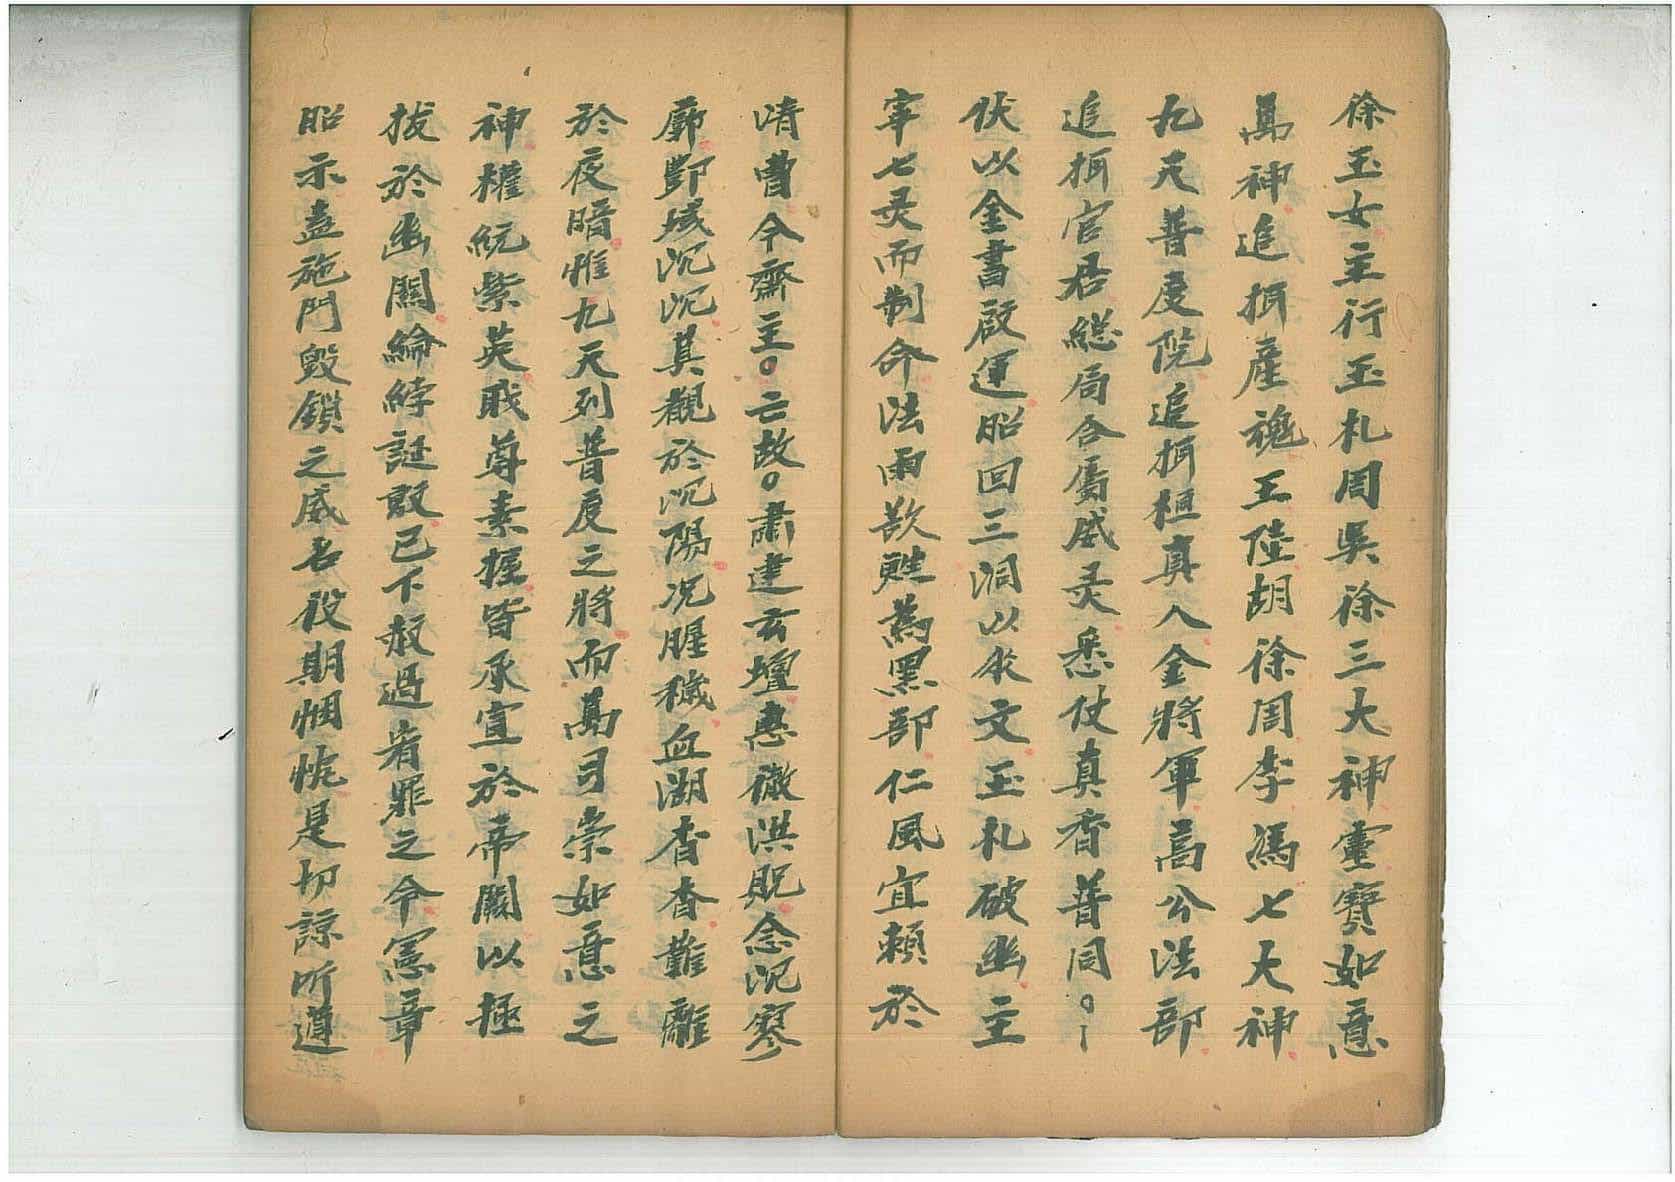 徐玉女主行玉札周吳徐三大神靈寶如意
萬神追攝產魂王陸胡徐周李馮七大神
九天普度院追攝桓真人金將軍高公法部
追攝官君総局合屬威灵悉仗真香普同〇
伏以金書啟運昭回三洞以成文玉札破幽主
宰七灵而制命法雨欻甦萬黑部仁風宜頼於
清曹今齋主〇亡故〇肅建玄壇悳徹洪貺念沉寥
廓酆域沉沉莫覩於沉陽况腥穢血湖杳杳難離
於夜暗惟九天列普度之將而萬司崇如意之
神權統紫英戢尊素握皆承宣於帝闕以拯
拔於幽關綸綍誕敭已下赦過宥罪之令憲章
昭示盍施門毀鎖之威名役期悃忱是切諒听遵